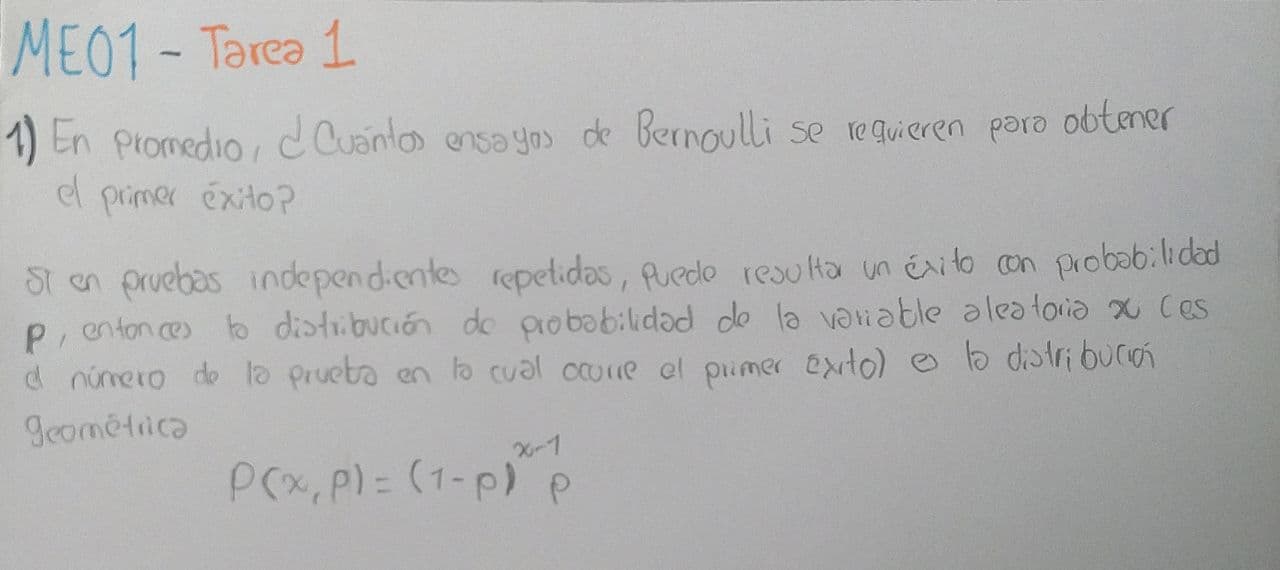 ME01 - Tarea 1
1) En promedio, ¿Cuántos ensayos de Bernoulli se requieren para obtener
el primer éxito?
Si en pruebas independientes repetidas, puede resultar un éxito con probabilidad
p, entonces la distribución de probabilidad de la variable aleatoria x (es
el número de la prueba en la cual ocurre el primer éxito) es la distribución
geométrica
P(x, p) = (1-p)^{x-1} p